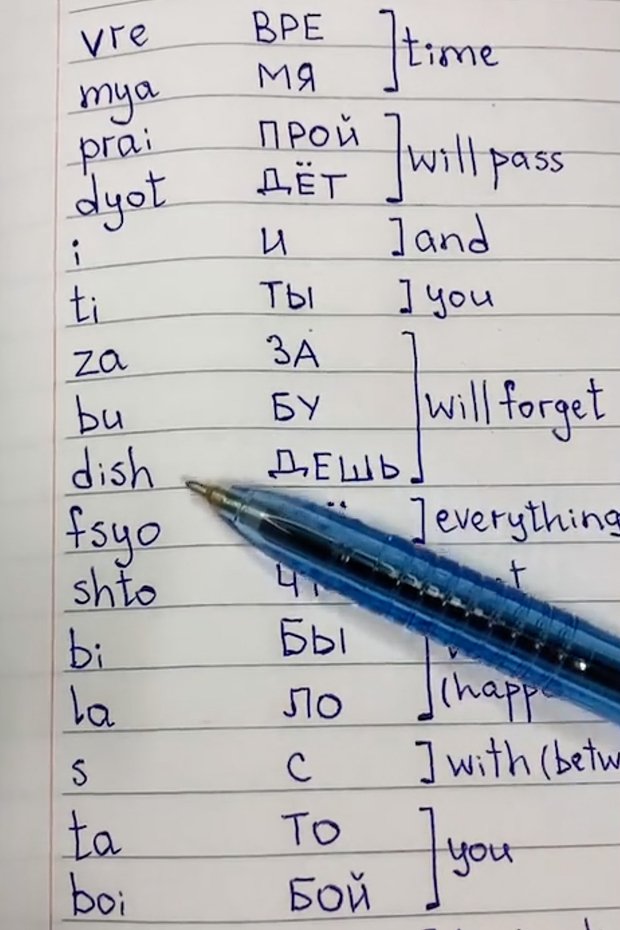 vre ВРЕ ] time
mya МЯ
prai ПРОЙ ] will pass
dyot ДЁТ
i И ] and
ti ТЫ ] you
za ЗА
bu БУ ] will forget
dish ДЕШЬ
fsyo ] everything
shto
bi БЫ
la ЛО
s С ] with
ta ТО ] you
boi БОЙ